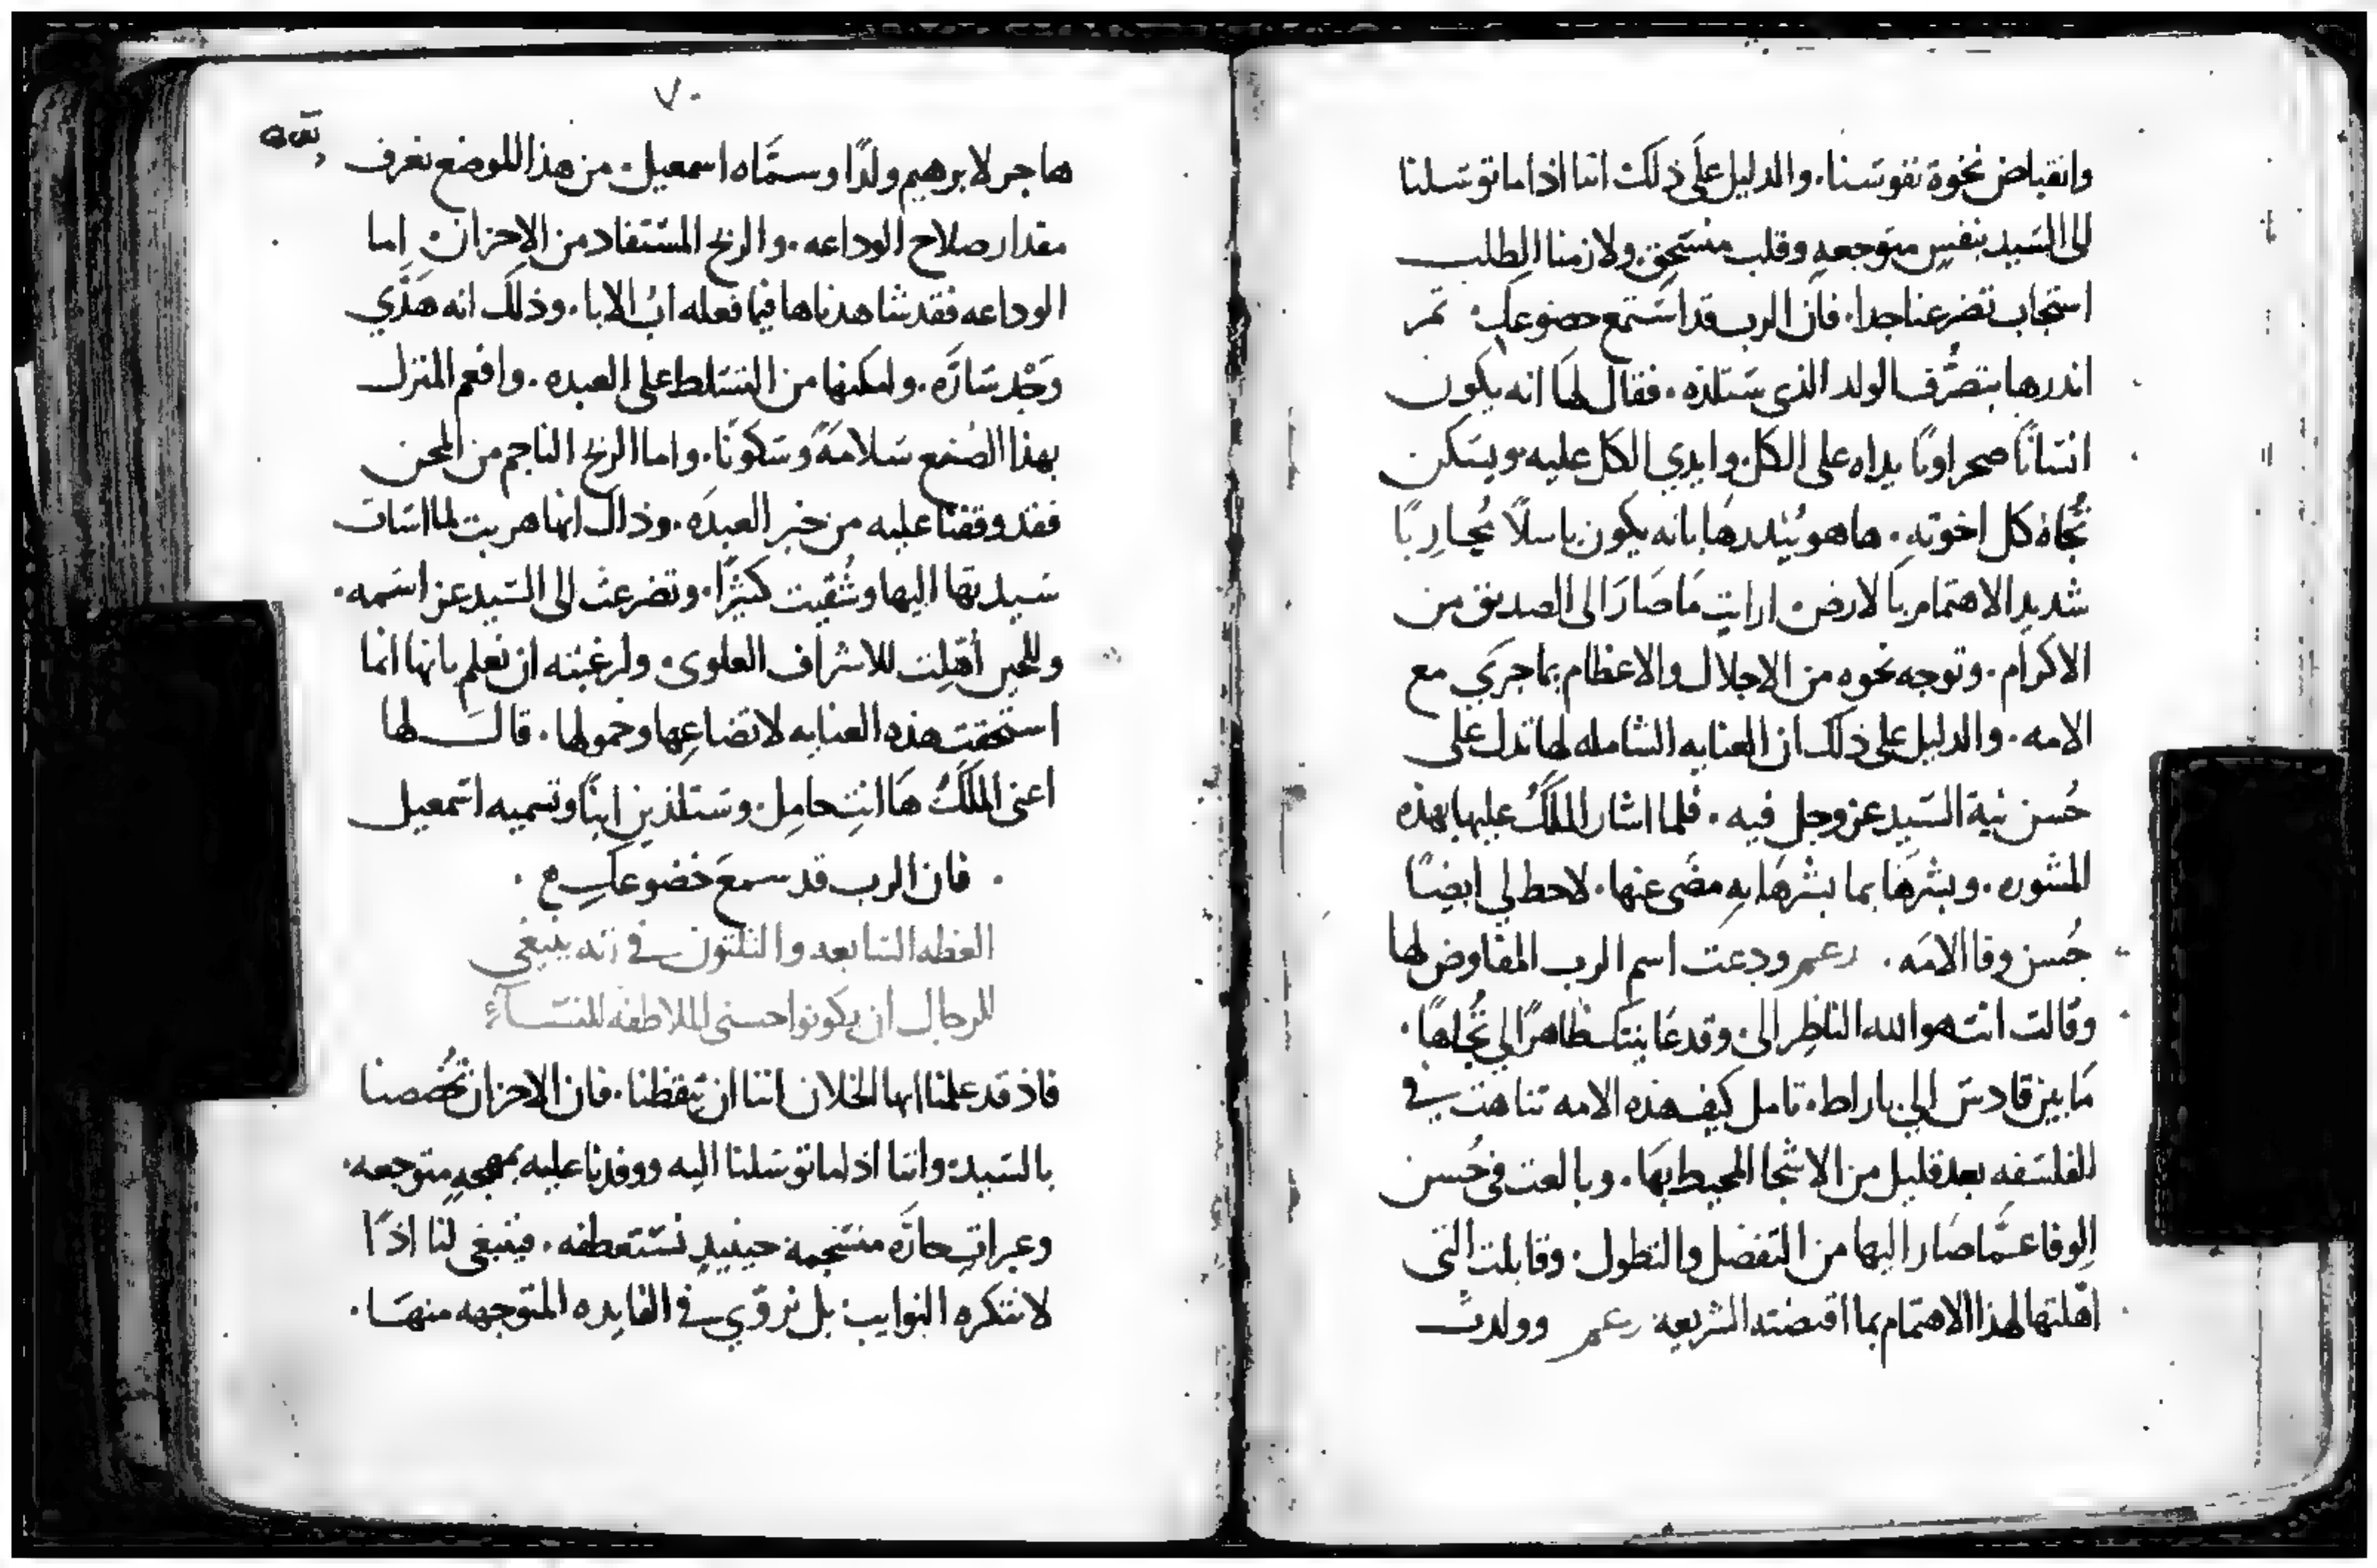 وانقباض نخوة نفوسنا. والدليل على ذلك اننا اذا ما توسلنا
الى السيد بنفس متوجعه وقلب منسحق. ولازمنا الطلب
استجاب تضرعنا جدا. فان الرب قد استمع خضوعك. ثم
اندرها بتصرف الولد الذي ستلده. فقال لها انه يكون
انسانًا صحراويًا يداه على الكل. وايدي الكل عليه. ويسكن
تجاة كل اخوته. ها هو يُنذرها بانه يكون باسلاً محاربًا
شديد الاهتمام بالارض. ارايت ما صار الى الصديق من
الاكرام. وتوجه نحوه من الاجلال والاعظام بما جرى مع
الامه. والدليل على ذلك ان العنايه الشامله لها تدل على
حُسن نية السيد عز وجل فيه. فلما اشار الملكُ عليها بهذه
المشوره. وبشرها بما بشرها به مضى عنها. لاحظ لي ايضًا
حُسن وفا الامه. زعم ودعت اسم الرب المفاوض لها
وقالت انت هو الله الناظر الى. وقد عاينتك ظاهرًا لي تُجاها.
ما بين قادس الى باراط. تامل كيف هذه الامه تناهت في
الفلسفه بعد قليل من الاشجا المحيط بها. وبالغت في حُسن
الوفا عمّا صار اليها من التفضل والتطول. وقابلت التي
اهّلتها لهذا الاهتمام بما اقتضته الشريعة. زعم وولدت
٧٠
هاجر لابرهيم ولدًا وسمَّاه اسمعيل. من هذا الموضع نعرف
مقدار صلاح الوداعه. والربح المستفاد من الاحزان. اما
الوداعه فقد شاهدناها فيما فعله اب الابا. وذلك انه هدَّي
وَجْد سارَّه. وامكنها من التسلط على العبده. وافعم المنزل
بهذا الصُنع سلامةً وسكونًا. واما الربح الناجم من المحن
فقد وقفنا عليه من خبر العبده. وذاك انها هربت لما اسات
سيدتها اليها وشُقيت كثيرًا. وتضرعت الى السيد عز اسمه.
وللحين أهّلت للاشراف العلوى. ولرغبته ان نعلم بانها انما
استحقت هذه العنايه لاتضاعها وخمولها. قال لها
اعنى الملَكُ ها انتِ حامِل. وستلدين ابنًا وتسميه اسمعيل
. فان الرب قد سمعَ خضوعكِ .
العظه السابعه والثلثون في انه ينبغي
للرجال ان يكونوا حسنى الملاطفه للنسآء
فاذ قد علمنا ايها الخلان اننا ان تيقظنا. فان الاحزان تُخصصنا
بالسيد. واننا اذا ما توسلنا اليه ووفدنا عليه بمهجةٍ متوجعه.
وعبراتٍ حارّه منسجمة حينيدٍ نستعطفه. فينبغى لنا اذًا
لا نتكره النوايب بل نروّي في الفايده المتوجهه منها.